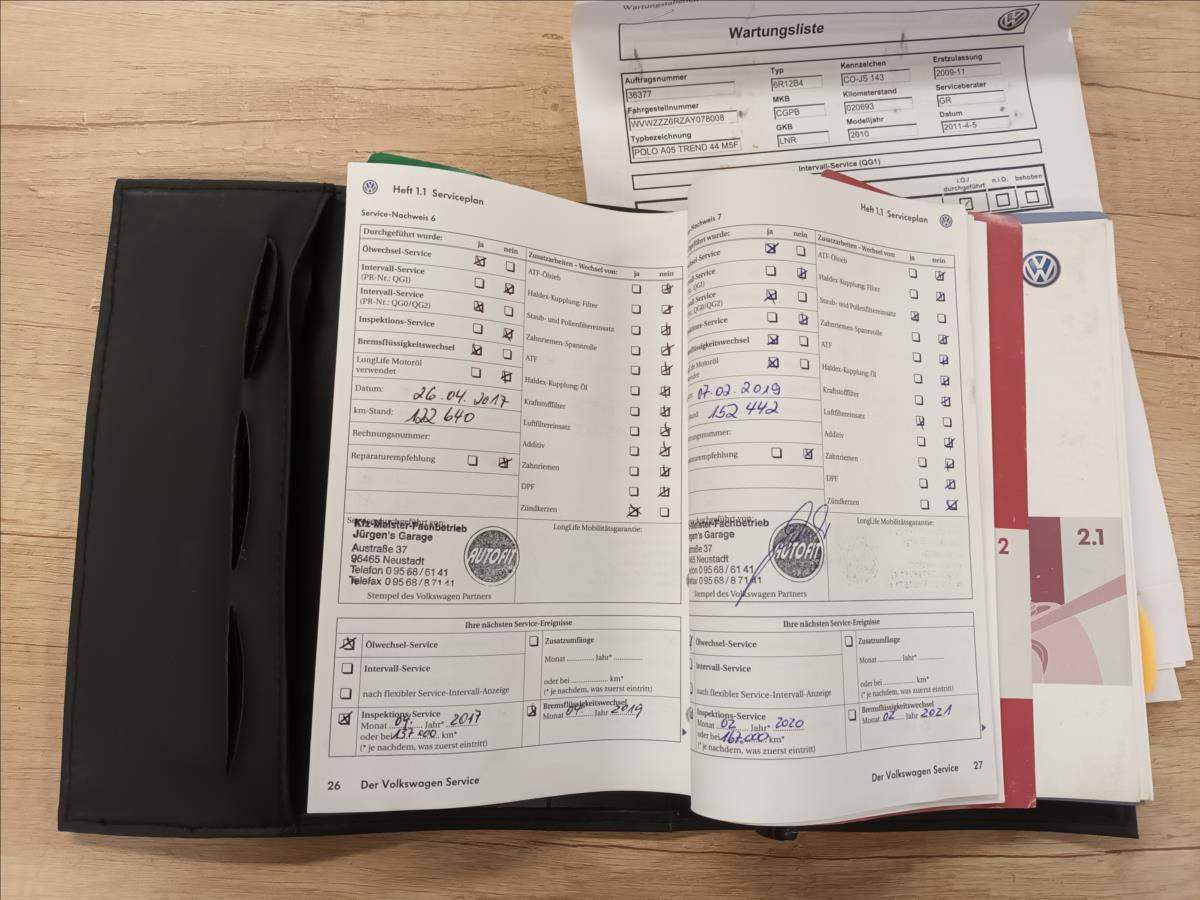 Wartungsliste
Auftragsnummer
36377
Typ
6R12B4
Kennzeichen
CO-JS 143
Erstzulassung
2009-11
Fahrgestellnummer
WVWZZZ6RZAY078008
MKB
CGPB
Kilometerstand
020693
Serviceberater
GR
Typbezeichnung
POLO A05 TREND 44 M5F
GKB
LNR
Modelljahr
2010
Datum
2011-4-5
Intervall-Service (QG1)
i.O./
durchgeführt
n.i.O.
behoben
Heft 1.1 Serviceplan
Service-Nachweis 6
Durchgeführt wurde: ja nein
Ölwechsel-Service
Intervall-Service
(PR-Nr.: QG1)
Intervall-Service
(PR-Nr.: QG0/QG2)
Inspektions-Service
Bremsflüssigkeitswechsel
LongLife Motoröl
verwendet
Datum: 26.04.2017
km-Stand: 122 640
Rechnungsnummer:
Reparaturempfehlung
Zusatzarbeiten – Wechsel von: ja nein
ATF-Ölsieb
Haldex-Kupplung: Filter
Staub- und Pollenfiltereinsatz
Zahnriemen-Spannrolle
ATF
Haldex-Kupplung: Öl
Kraftstofffilter
Luftfiltereinsatz
Additiv
Zahnriemen
DPF
Zündkerzen
Kfz-Meister-Fachbetrieb
Jürgen's Garage
Austraße 37
96465 Neustadt
Telefon 0 95 68 / 61 41
Telefax 0 95 68 / 8 71 41
AUTOFIT
Stempel des Volkswagen Partners
LongLife Mobilitätsgarantie:
Ihre nächsten Service-Ereignisse
Ölwechsel-Service
Intervall-Service
nach flexibler Service-Intervall-Anzeige
Inspektions-Service
Monat 04. Jahr* 2017
oder bei 137.000 km*
(* je nachdem, was zuerst eintritt)
Zusatzumfänge
Monat Jahr*
oder bei km*
(* je nachdem, was zuerst eintritt)
Bremsflüssigkeitswechsel
Monat 04. Jahr 2019
26 Der Volkswagen Service
Heft 1.1 Serviceplan
Nachweis 7
geführt wurde: ja nein
chsel-Service
-Service
QG1)
Service
QG0/QG2)
ons-Service
flüssigkeitswechsel
Life Motoröl
07.02.2019
152 442
ungsnummer:
aturempfehlung
Zusatzarbeiten – Wechsel von: ja nein
ATF-Ölsieb
Haldex-Kupplung: Filter
Staub- und Pollenfiltereinsatz
Zahnriemen-Spannrolle
ATF
Haldex-Kupplung: Öl
Kraftstofffilter
Luftfiltereinsatz
Additiv
Zahnriemen
DPF
Zündkerzen
Meister-Fachbetrieb
rgen's Garage
straße 37
465 Neustadt
elefon 0 95 68 / 61 41
elefax 0 95 68 / 8 71 41
AUTOFIT
Stempel des Volkswagen Partners
LongLife Mobilitätsgarantie:
Ihre nächsten Service-Ereignisse
Ölwechsel-Service
Intervall-Service
nach flexibler Service-Intervall-Anzeige
Inspektions-Service
Monat 02 Jahr* 2020
oder bei 167.000 km*
(* je nachdem, was zuerst eintritt)
Zusatzumfänge
Monat Jahr*
oder bei km*
(* je nachdem, was zuerst eintritt)
Bremsflüssigkeitswechsel
Monat 02 Jahr 2021
Der Volkswagen Service 27
2
2.1